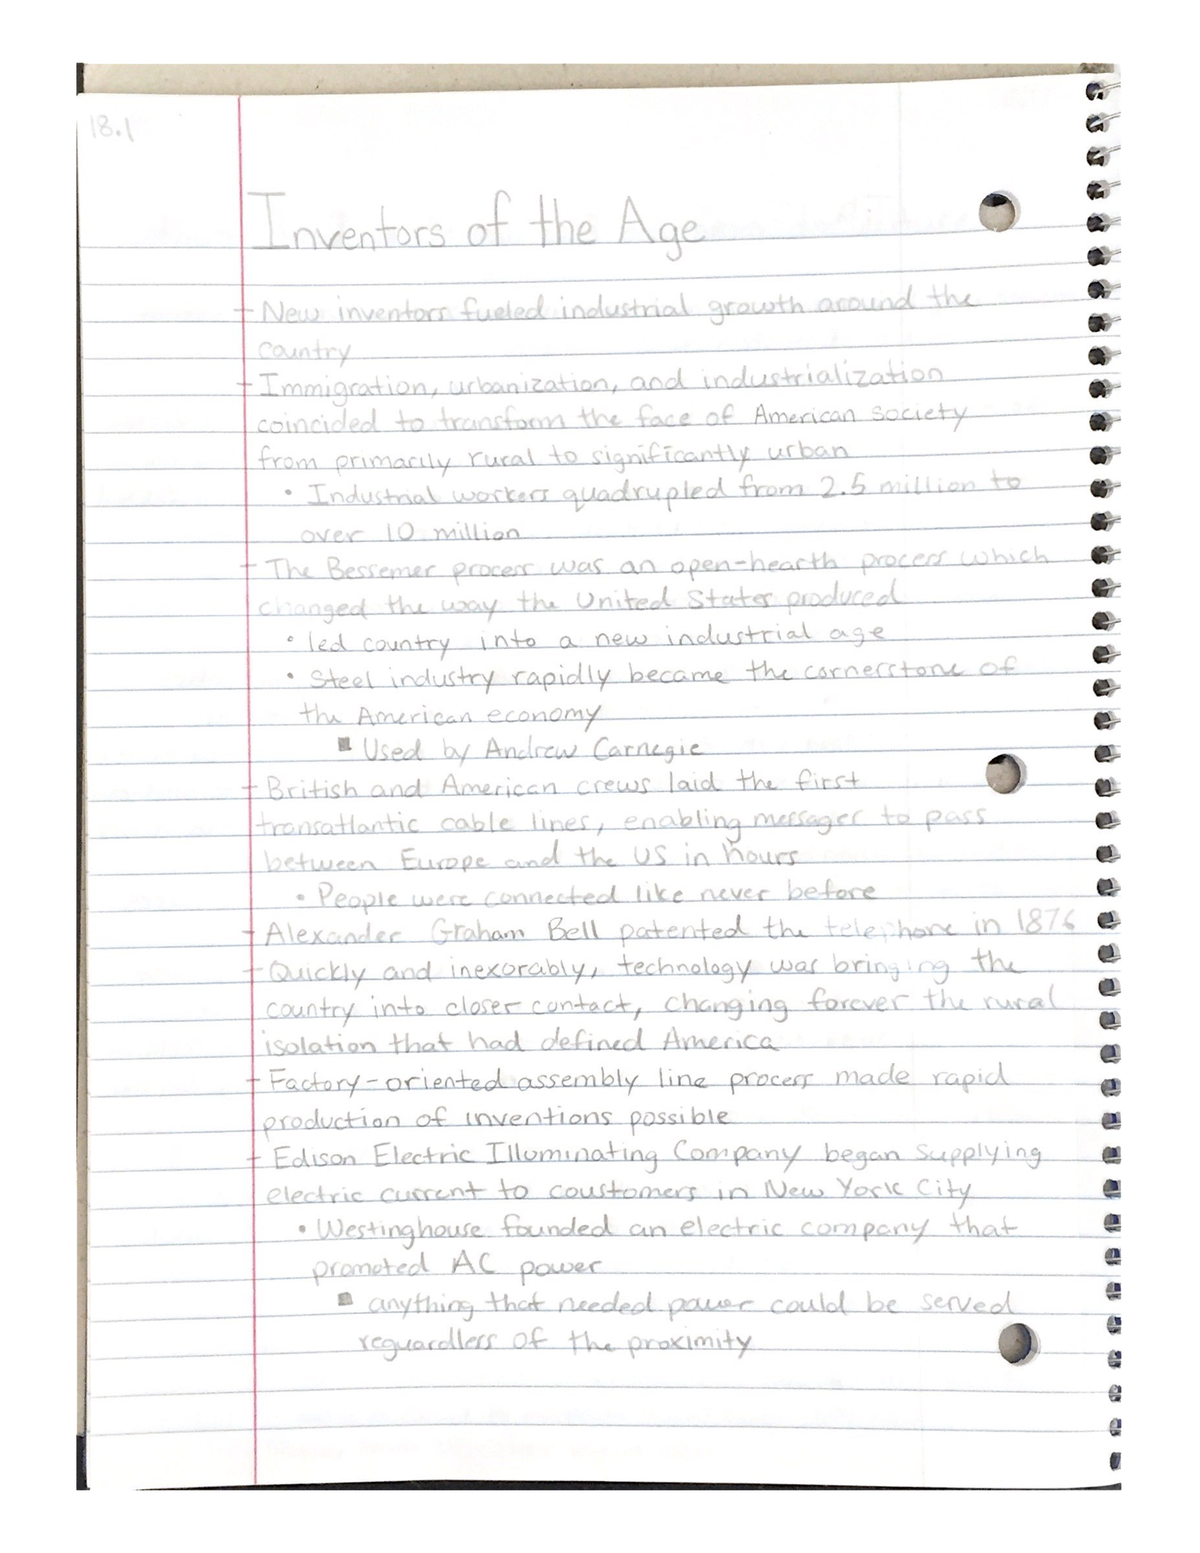 18.1
Inventors of the Age
- New inventors fueled industrial growth around the
country
- Immigration, urbanization, and industrialization
coincided to transform the face of American society
from primarily rural to significantly urban
• Industrial workers quadrupled from 2.5 million to
over 10 million
- The Bessemer process was an open-hearth process which
changed the way the United States produced
• led country into a new industrial age
• Steel industry rapidly became the cornerstone of
the American economy
▪ Used by Andrew Carnegie
- British and American crews laid the first
transatlantic cable lines, enabling messages to pass
between Europe and the US in hours
• People were connected like never before
- Alexander Graham Bell patented the telephone in 1876
- Quickly and inexorably, technology was bringing the
country into closer contact, changing forever the rural
isolation that had defined America
- Factory-oriented assembly line process made rapid
production of inventions possible
- Edison Electric Illuminating Company began supplying
electric current to coustomers in New York City
• Westinghouse founded an electric company that
promoted AC power
▪ anything that needed power could be served
reguardless of the proximity